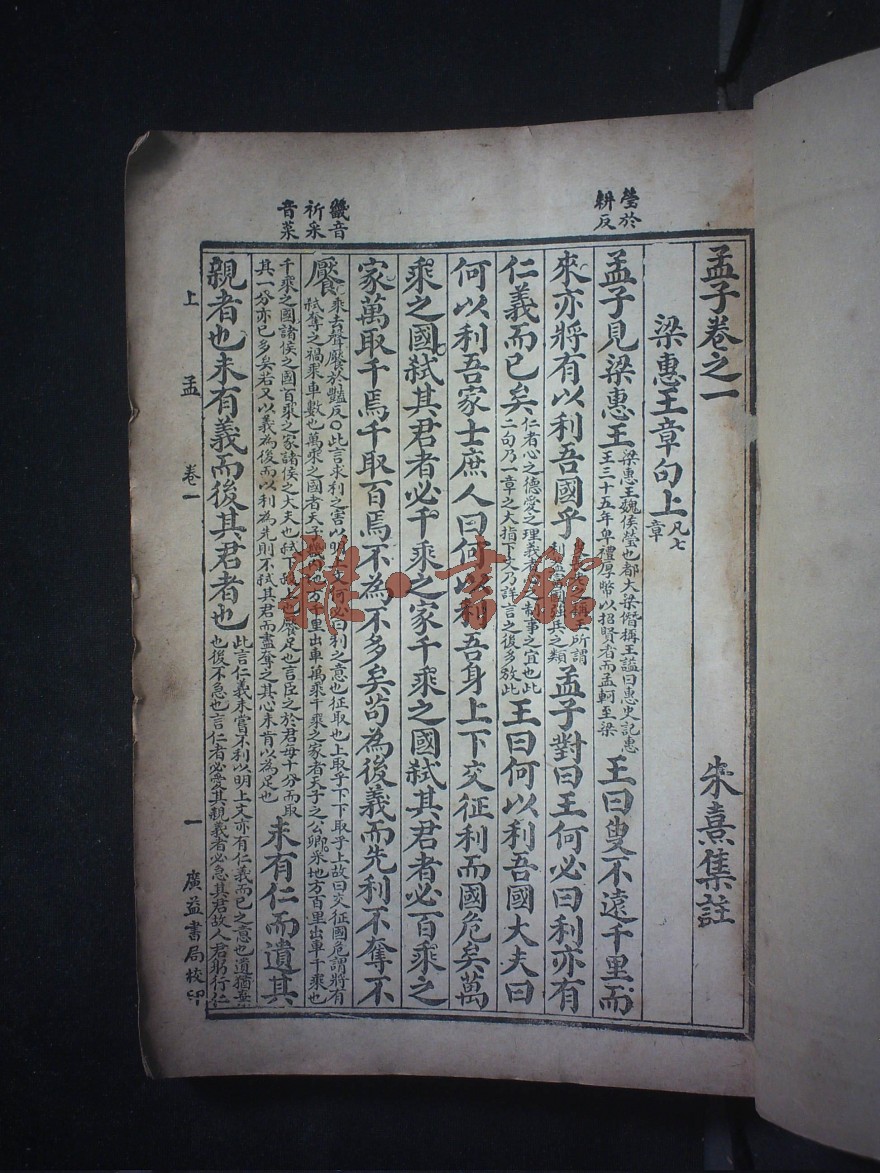 瑩於
畊反
畿音
祈采
音菜
孟子卷之一
朱熹集註
梁惠王章句上
凡七
章
孟子見梁惠王
梁惠王魏侯瑩也都大梁僭稱王謚曰惠史記惠
王三十五年卑禮厚幣以招賢者而孟軻至梁
王曰叟不遠千里而
來亦將有以利吾國乎
所謂
之類
孟子對曰王何必曰利亦有
仁義而已矣
仁者心之德愛之理義者制事之宜也此
二句乃一章之大指下文乃詳言之後多放此
王曰何以利吾國大夫曰
何以利吾家士庶人曰何以利吾身上下交征利而國危矣萬
乘之國弒其君者必千乘之家千乘之國弒其君者必百乘之
家萬取千焉千取百焉不為不多矣苟為後義而先利不奪不
饜
乘去聲饜於豔反○此言求利之害以明上文何必曰利之意也征取也上取乎下下取乎上故曰交征國危謂將有
弒奪之禍乘車數也萬乘之國者天子畿內地方千里出車萬乘千乘之家者天子之公卿采地方百里出車千乘也
千乘之國諸侯之國百乘之家諸侯之大夫也弒下殺上也饜足也言臣之於君每十分而取
其一分亦已多矣若又以義為後而以利為先則不弒其君而盡奪之其心未肯以為足也
未有仁而遺其
親者也未有義而後其君者也
此言仁義未嘗不利以明上文亦有仁義而已之意也遺猶棄
也後不急也言仁者必愛其親義者必急其君故人君躬行仁
上 孟 卷一 一 廣益書局校印
雅·書館